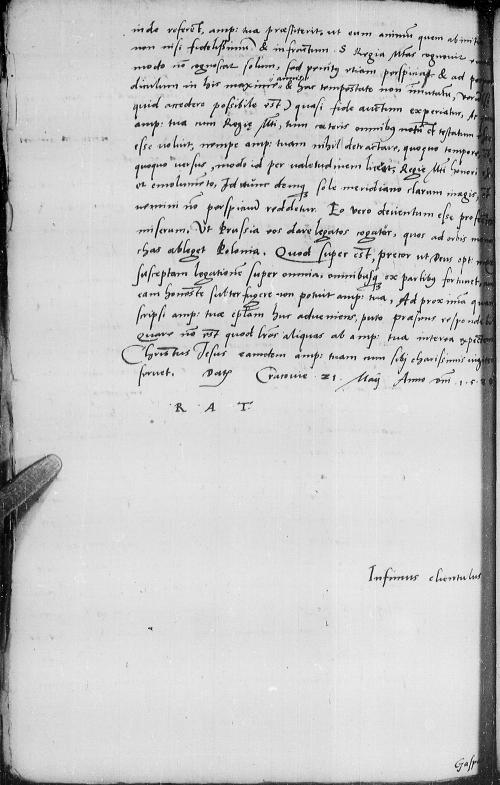 inde referet, amp: tua præstiterit, ut eum animum quem ab initio
non nisi fidelissimum & infractum S Regia Mtas cognovit
modo nō cognoscat solum, sed penitus etiam perspiciat & ad
in his maxime & hac tempestate non immutatū,
quid accedere possibile est) quasi fide auctum experiatur,
amp: tua cum Regie Mti, tum cæteris omnibus notū et testatum
esse voluit, nempe amp: tuam nihil detractare, quoquo tempore,
quoquo versus, modo id per valetudinem liceat, Regie Mti honori
et emolumento, Id nunc demū sole meridiano clarum magis,
nemini nō perspicuū reddetur. Eo vero deventum esse
miserum, Ut Prussia vos dare legatos cogatur, quos ad orbis
ablegat Polonia. Quod super est, precor ut Deus opt:
susceptam legationē super omnia, omnibusq ex partibus fortunet,
eam honeste subterfugere non potuit amp: tua, Ad proximā quam
scripsi amp: tuæ eplam huc adveniens, puto præsens
quare nō est quod lras aliquas ab amp: tua interea
Christus Jesus eamdem amp: tuam cum sibi charissimis
servet. Datȩ Cracovie 21 Maij Anno dni 1.5.
R A T
Infimus clientulus